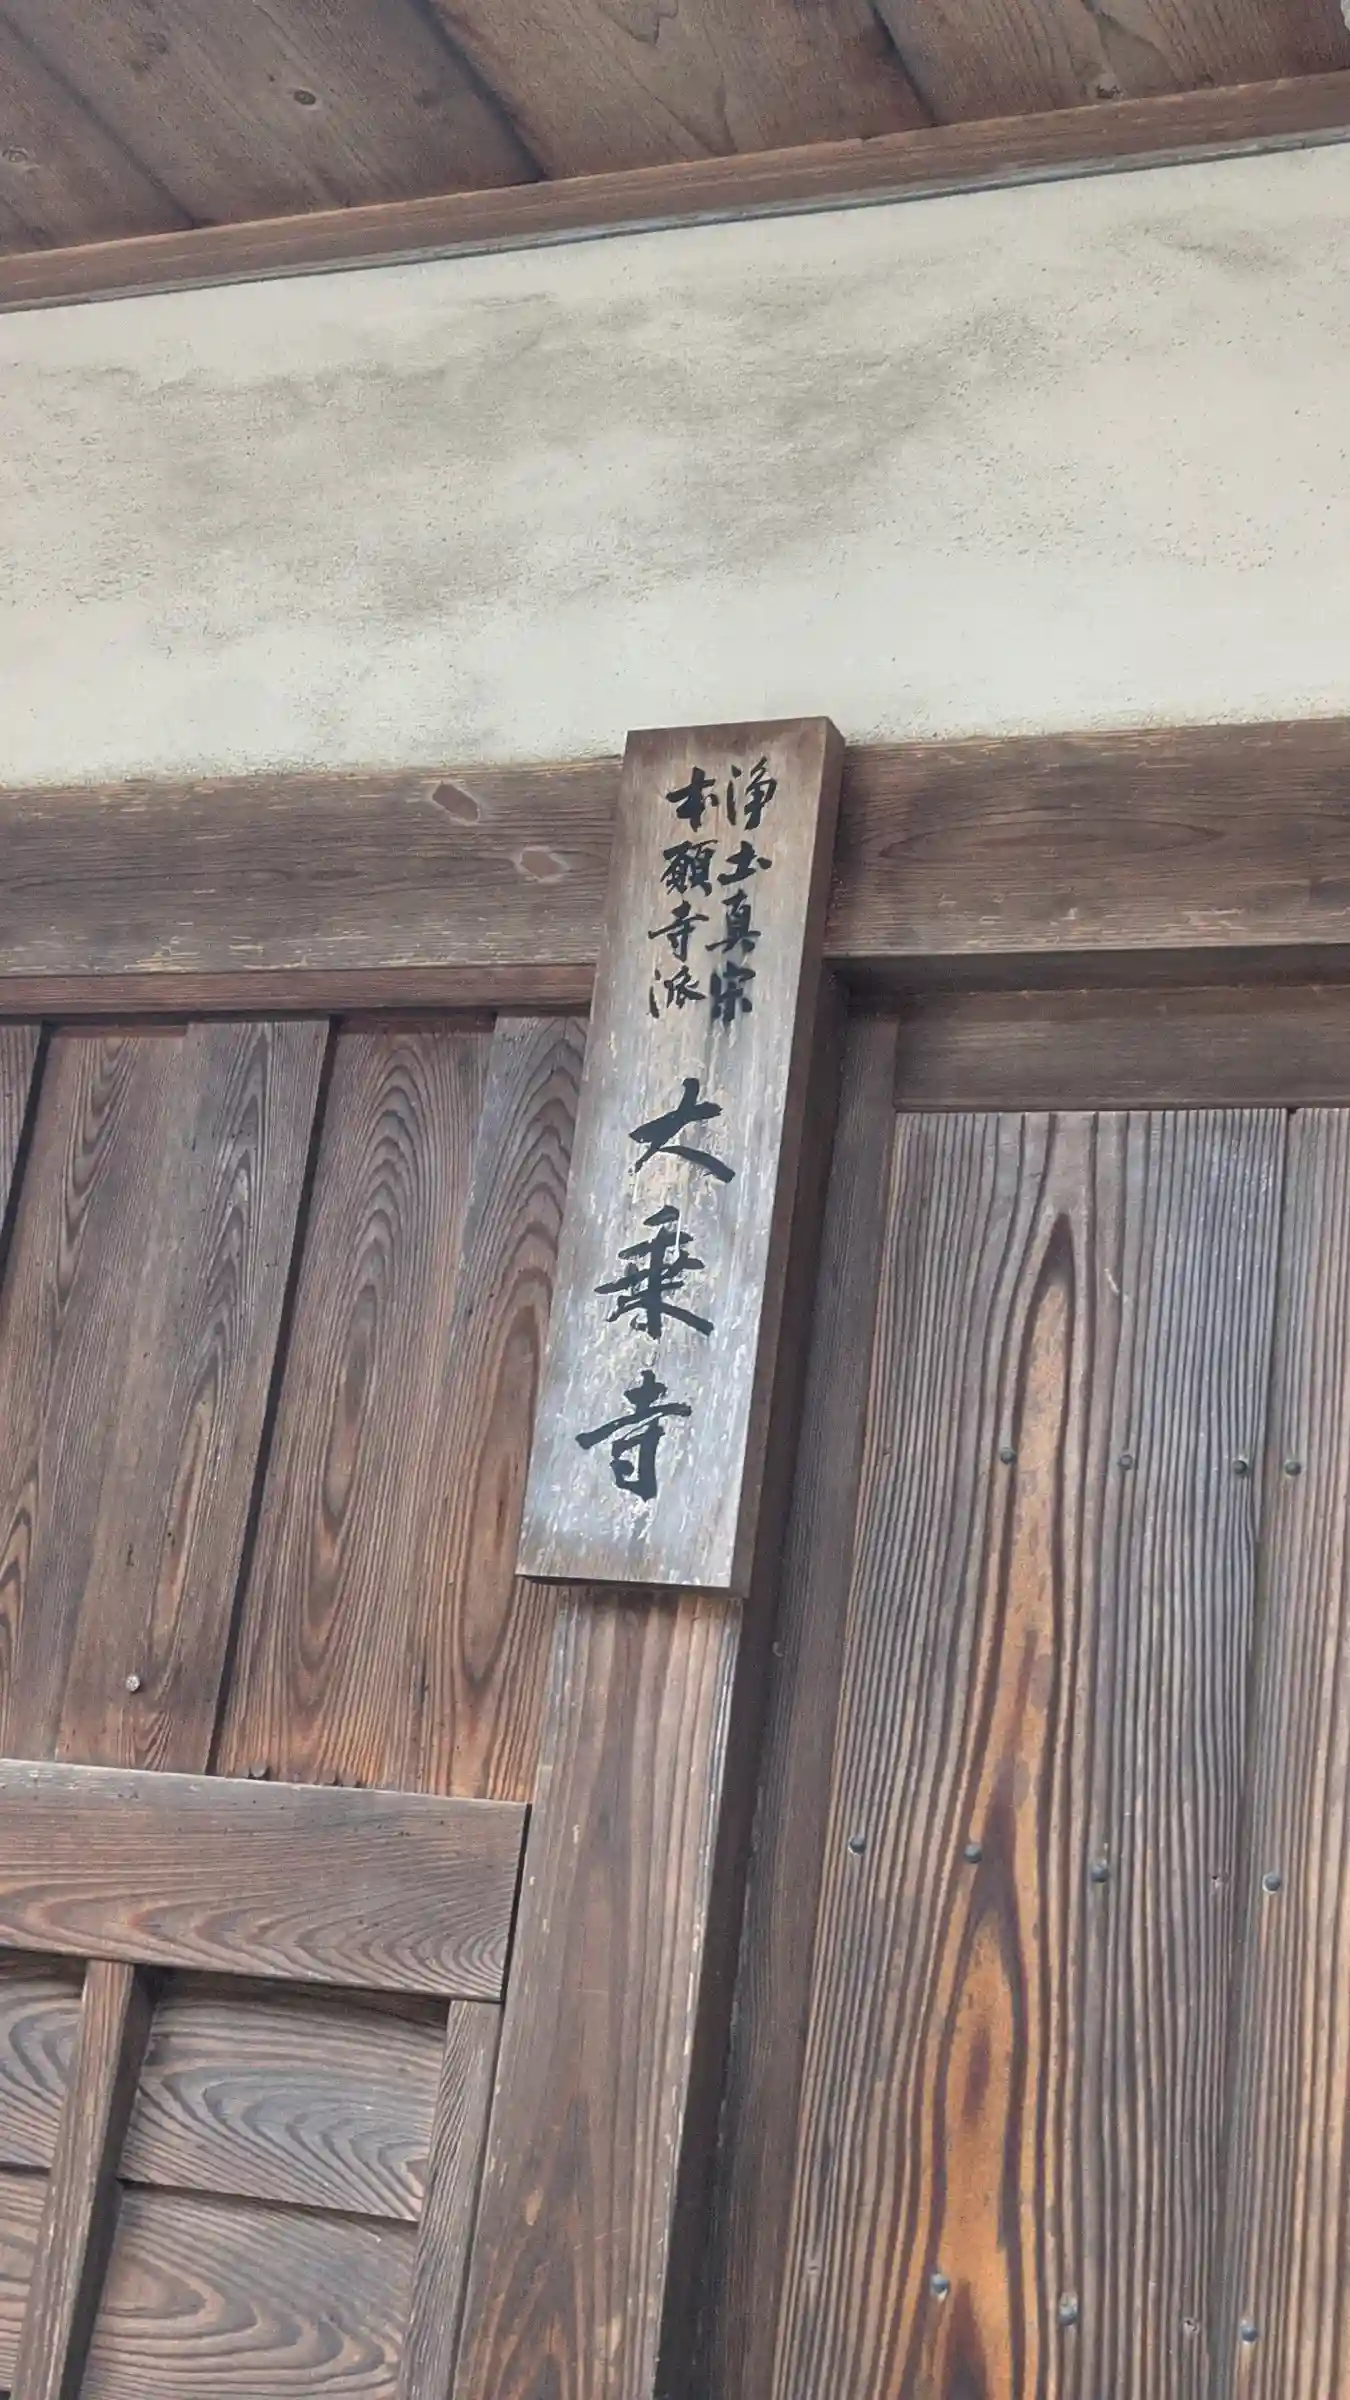 浄土真宗
本願寺派
大乗寺